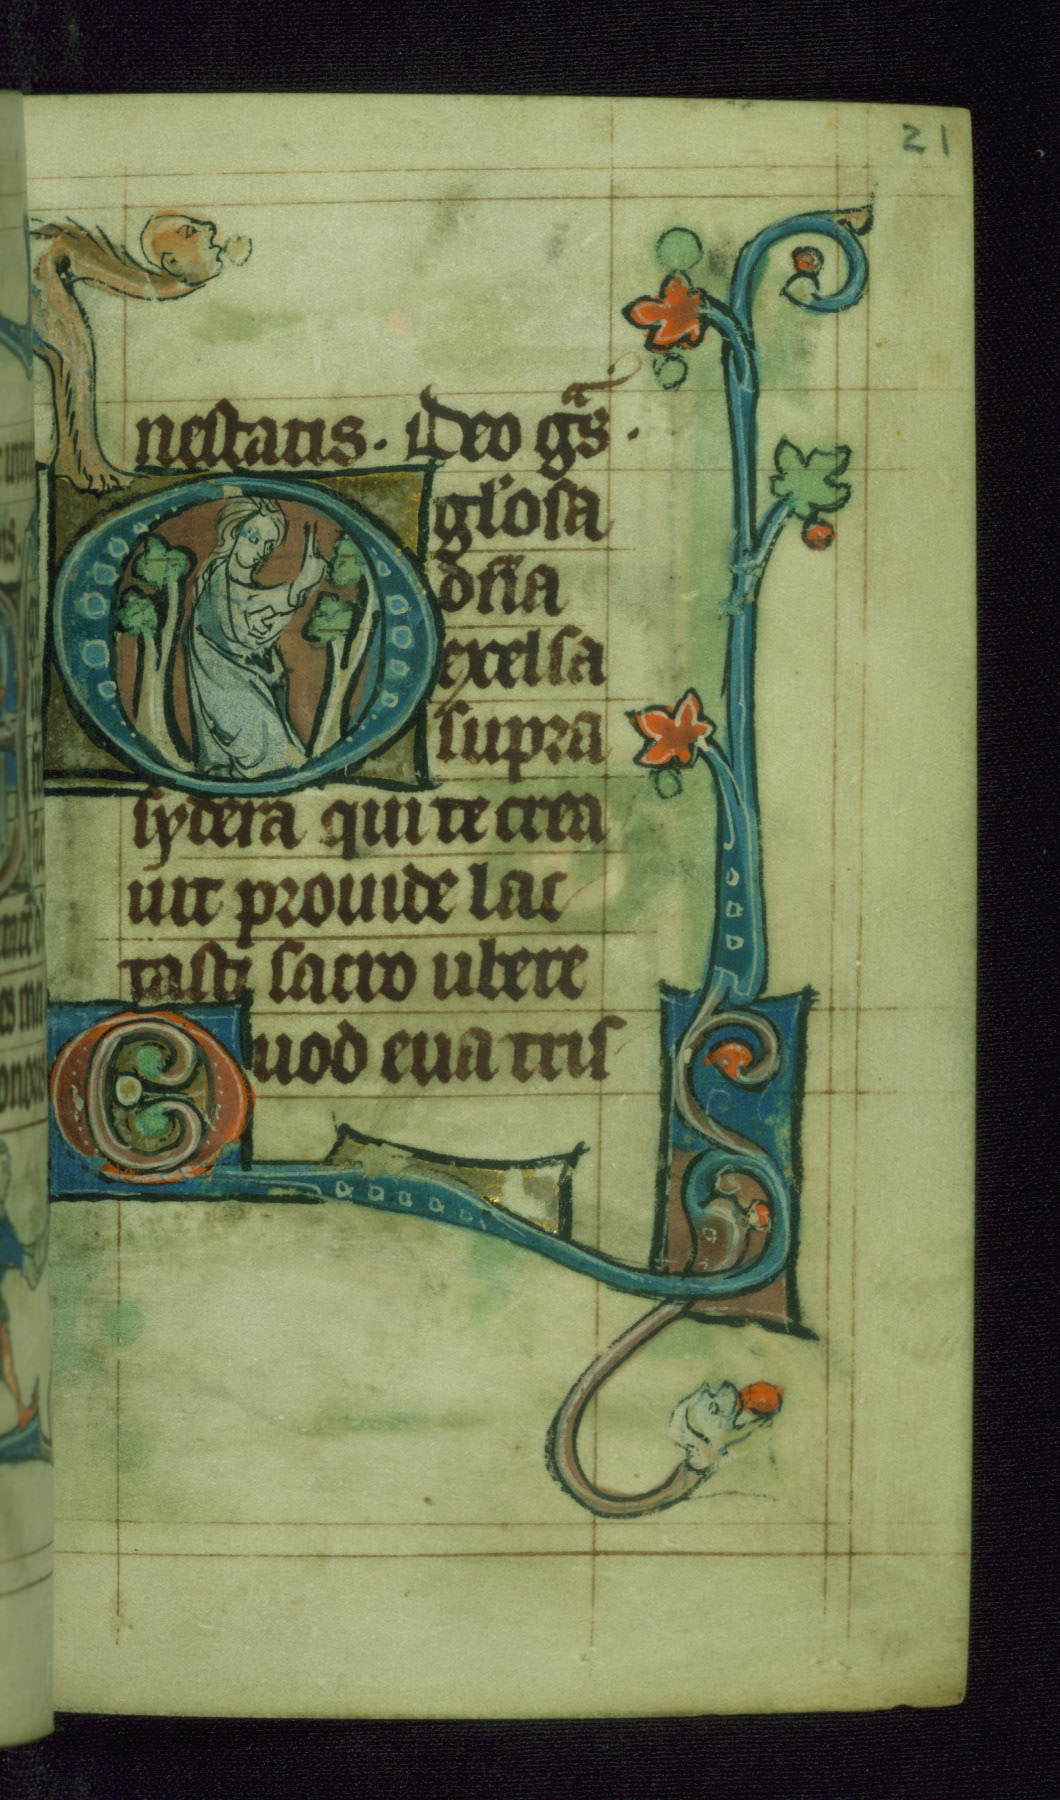 21
nestatis. ideo gͣs.
O gl'osa
dn̄a
excelsa
supra
sydera qui te crea
uit prouide lac
tasti sacro ubere
Quod eua tris